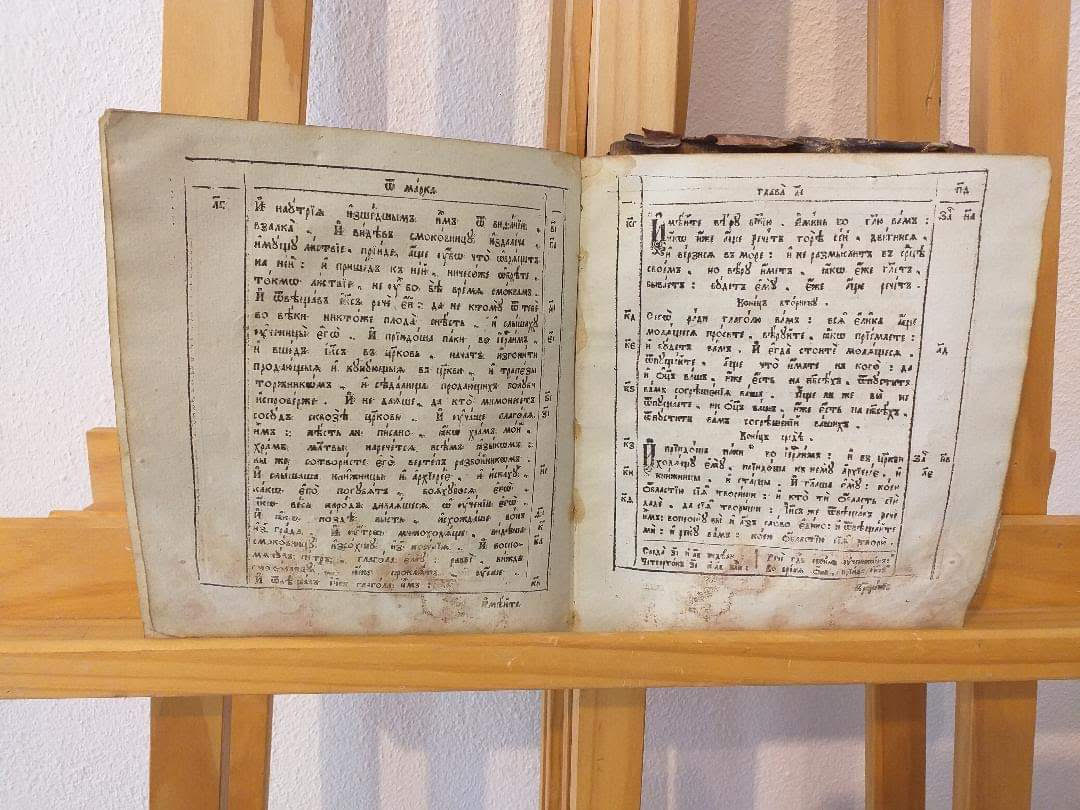 Ѿ Ма́рка
И҆ наꙋтрїѧ и҆зше́дшымъ и҆̀мъ ѿ виѳа́нїи,
взалка̀. И҆ ви́дѣвъ смоко́вницꙋ и҆здале́ча,
и҆мꙋ́щꙋ ли́ствїе, прїи́де, а҆́ще ᲂу҆́бѡ что̀ ѡ҆брѧ́щетъ
на не́й: и҆ прише́дъ къ не́й, ничесо́же ѡ҆брѣ́те,
то́кмѡ ли́ствїе, не ᲂу҆̀ бо бѣ̀ вре́мѧ смо́квамъ.
И҆ ѿвѣща́въ і҆и҃съ речѐ е҆́й: да не ктомꙋ̀ ѿ тебѐ
во вѣ́ки никто́же плода̀ снѣ́сть. и҆ слы́шахꙋ
ᲂу҆ченицы̀ є҆гѡ̀. И҆ прїидо́ша па́ки во і҆ер҃ли́мъ.
и҆ вше́дъ і҆и҃съ въ цр҃ковь, нача́тъ и҆згони́ти
продаю́щыѧ и҆ кꙋпꙋ́ющыѧ въ цр҃кви. и҆ трапе́зы
торжникѡ́мъ, и҆ сѣда́лища продаю́щихъ го́лꙋби
и҆спрове́рже. И҆ не даѧ́ше, да кто̀ мимонесе́тъ
сосꙋ́дъ сквозѣ̀ цр҃ковь. И҆ ᲂу҆ча́ше глаго́лѧ
и҆̀мъ: нѣ́сть ли пи́сано, ꙗ҆́кѡ хра́мъ мо́й,
хра́мъ мл҃твы нарече́тсѧ, всѣ̑мъ ꙗ҆зы́кѡмъ:
вы́ же сотвори́сте є҆го̀ верте́пъ разбо́йникѡмъ.
И҆ слы́шаша кни́жницы и҆ а҆рхїере́е, и҆ и҆ска́хꙋ
ка́кѡ є҆го̀ погꙋбѧ́тъ. боѧ́хꙋбосѧ є҆гѡ̀,
ꙗ҆́кѡ ве́сь наро́дъ дивлѧ́шесѧ ѡ҆ ᲂу҆че́нїи є҆гѡ̀.
И҆ ꙗ҆́кѡ по́здѣ бы́сть, и҆схожда́ше во́нъ
и҆з̾ гра́да. И҆ ᲂу҆́трѡ мимоходѧ́ще, ви́дѣша
смоко́вницꙋ и҆зсо́хшꙋ и҆з̾ коре́нїѧ. И҆ воспо-
мѧнꙋ́въ пе́тръ, глаго́ла є҆мꙋ̀: равві̀, ви́ждь
смоко́вница, ю҆́же проклѧ́тъ, ᲂу҆́сше.
И҆ ѿвѣща́въ і҆и҃съ глаго́ла и҆̀мъ
и҆мѣ́йте
глава̀ а҃і
И҆мѣ́йте вѣ́рꙋ бж҃їю. а҆ми́нь бо гл҃ю ва́мъ:
ꙗ҆́кѡ и҆́же а҆́ще рече́тъ горѣ̀ се́й, дви́гнисѧ,
и҆ ве́рзисѧ въ мо́ре: и҆ не размы́слитъ въ ср҃цѣ
свое́мъ, но вѣ́рꙋ и҆́метъ, ꙗ҆́кѡ є҆́же гл҃етъ
быва́етъ: бꙋ́детъ є҆мꙋ̀, є҆́же а҆́ще рече́тъ.
Коне́цъ вто́рникꙋ.
Сегѡ̀ ра́ди глаго́лю ва́мъ: всѧ̀ є҆ли̑ка а҆́ще
молѧ́щесѧ про́сите, вѣ́рꙋйте, ꙗ҆́кѡ прїе́млете:
и҆ бꙋ́детъ ва́мъ. И҆ є҆гда̀ стоитѐ молѧ́щесѧ,
ѿпꙋща́йте, а҆́ще что̀ и҆́мате на кого̀: да
и҆ ѻ҆ц҃ъ ва́шъ, и҆́же є҆́сть на нб҃сѣ́хъ, ѿпꙋ́ститъ
ва́мъ согрѣше́нїѧ ва́ша. А҆́ще ли же вы̀ не
ѿпꙋща́ете, ни ѻ҆ц҃ъ ва́шъ, и҆́же є҆́сть на нб҃сѣ́хъ,
ѿпꙋ́ститъ ва́мъ согрѣше́нїй ва́шихъ.
Коне́цъ средѣ̀.
И҆ прїидо́ша па́ки во і҆ер҃ли́мъ: и҆ въ цр҃кви
ходѧ́щꙋ є҆мꙋ̀, прїидо́ша къ немꙋ̀ а҆рхїере́е, и҆
кни́жницы и҆ ста́рцы: И҆ гл҃аша є҆мꙋ̀: ко́ею
ѻ҆́бластїю сїѧ̑ твори́ши: и҆ кто̀ тѝ ѻ҆́бласть сїю̀
дадѐ, да сїѧ̑ твори́ши: І҆и҃съ же ѿвѣща́въ речѐ
и҆̀мъ: вопрошꙋ̀ вы̀ и҆ а҆́зъ сло́во є҆ди́но: и҆ ѿвѣща́йте
мѝ: и҆ рекꙋ̀ ва́мъ, ко́ею ѻ҆́бластїю сїѧ̑ творю̀.